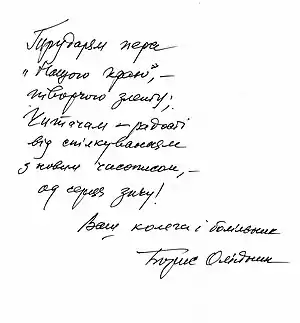 Трударям пера
„Нашого краю", –
творчого злету;
Читачам – радості
від спілкування
з новим часописом, –
од серця зичу!
Ваш колега і болільник
Борис Олійник